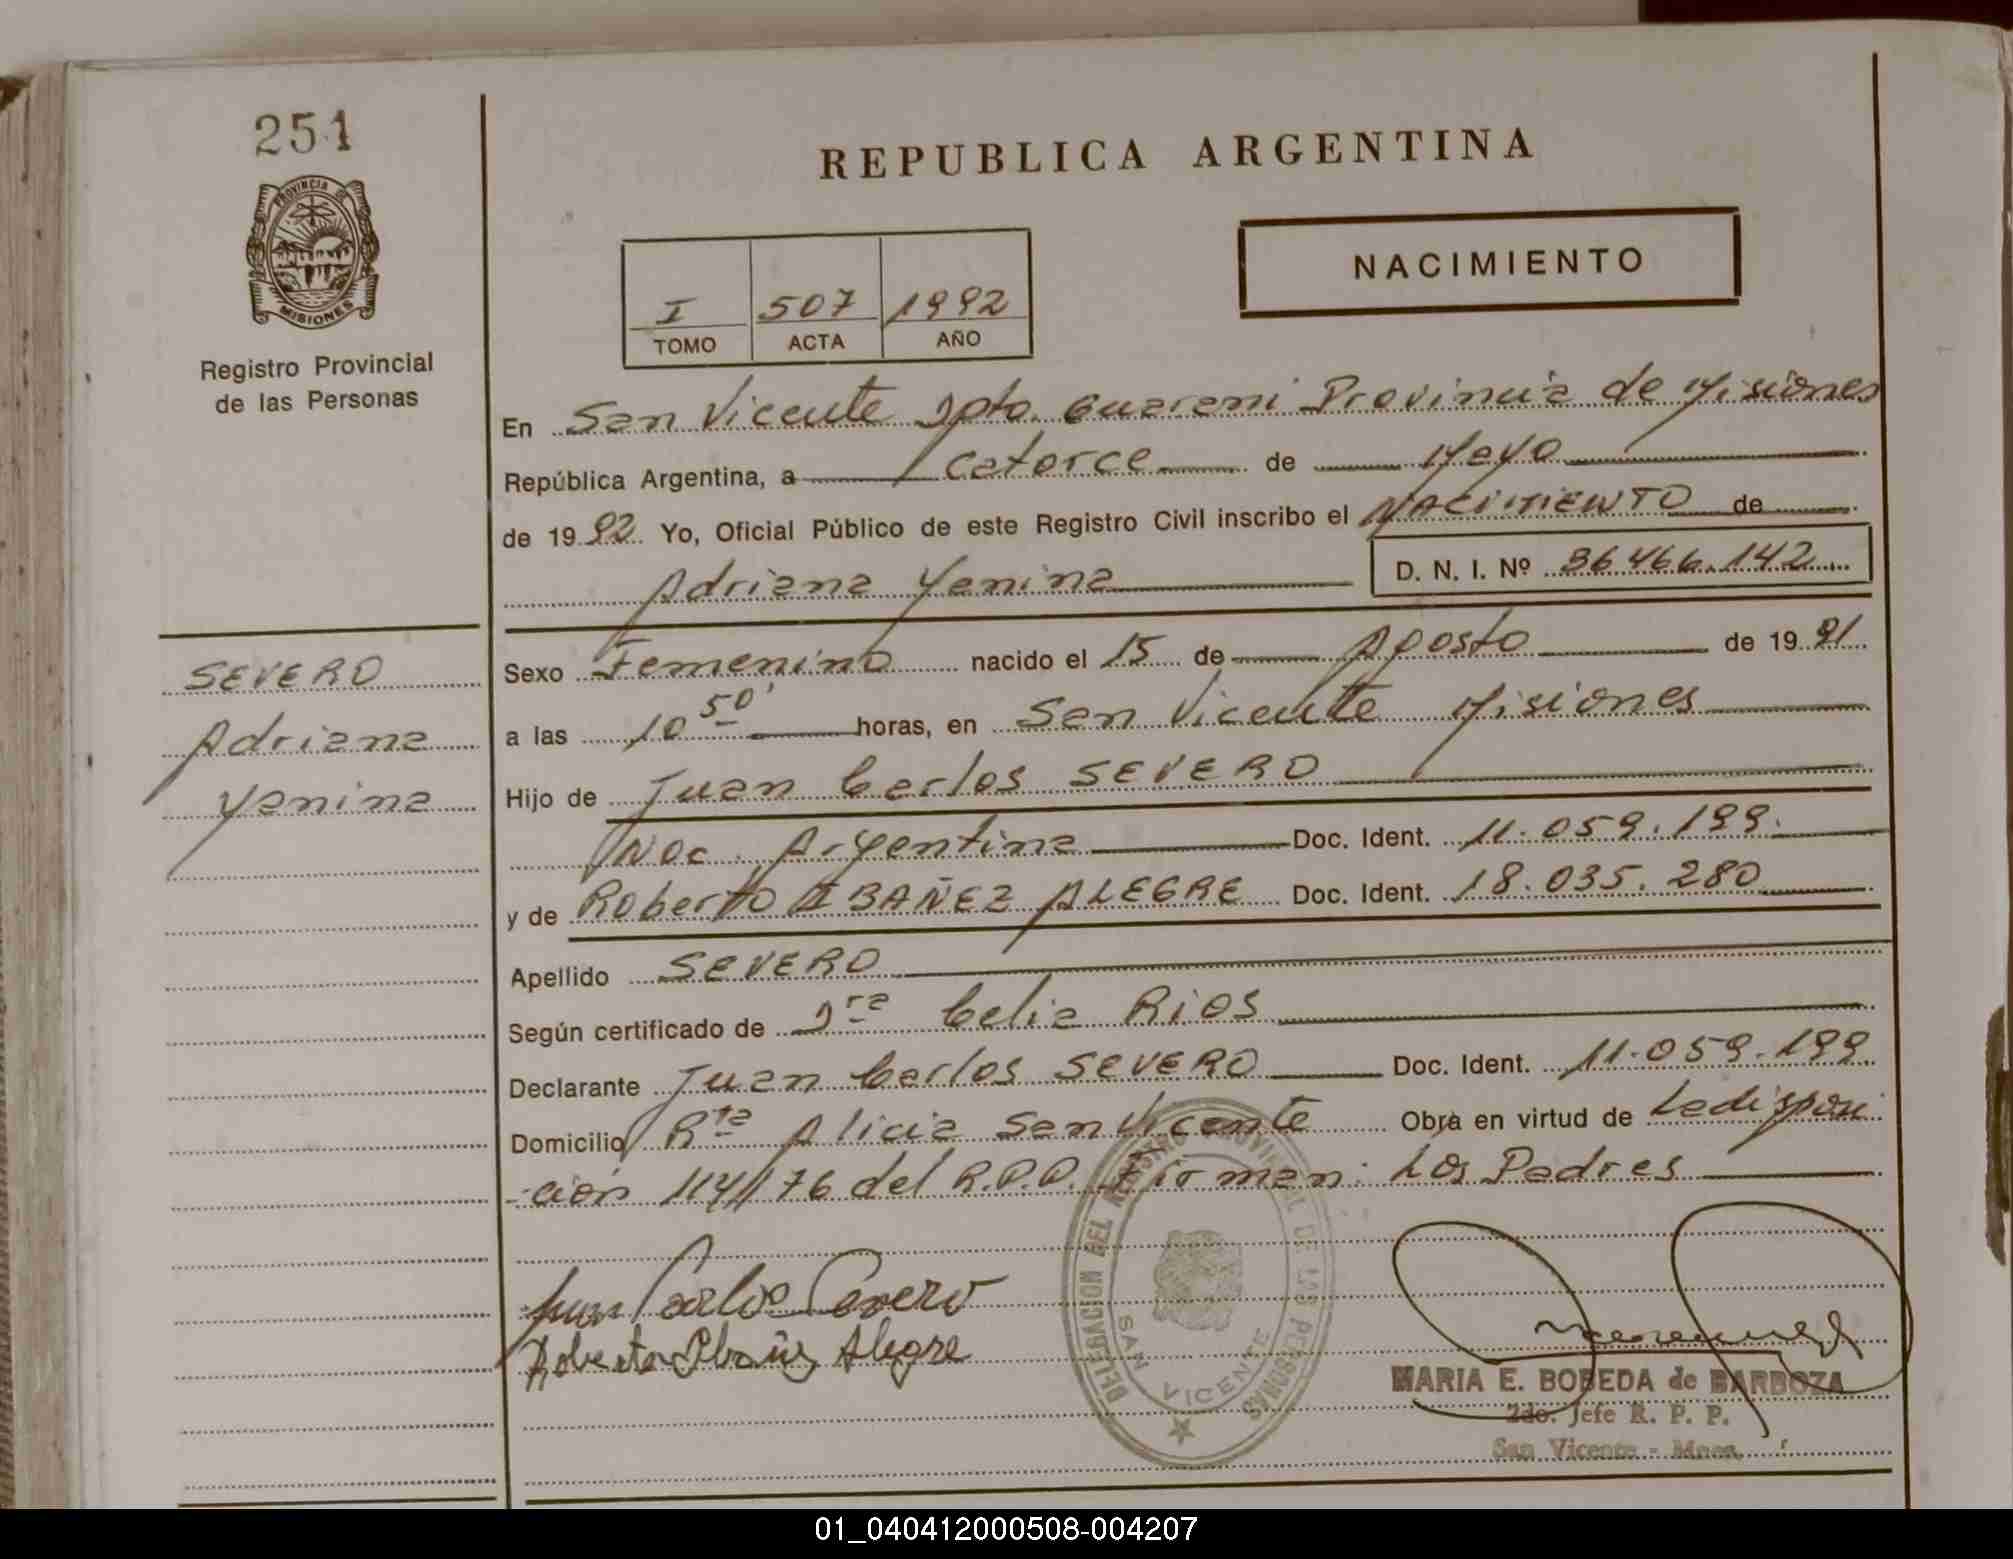 251
PROVINCIA DE
MISIONES
Registro Provincial
de las Personas
REPUBLICA ARGENTINA
I 507 1992
TOMO ACTA AÑO
NACIMIENTO
En San Vicente Dpto. Guarani Provincia de Misiones
República Argentina, a catorce de Mayo
de 1992 Yo, Oficial Público de este Registro Civil inscribo el NACIMIENTO de
Adriana Yanina D. N. I. Nº 36466.142
SEVERO
Adriana
Yanina
Sexo Femenino nacido el 15 de Agosto de 1991
a las 10 50' horas, en San Vicente Misiones
Hijo de Juan Carlos SEVERO
Nac. Argentina Doc. Ident. 11.059.199.
y de Roberto IBAÑEZ ALEGRE Doc. Ident. 18.035.280
Apellido SEVERO
Según certificado de Dra Celia Rios
Declarante Juan Carlos SEVERO Doc. Ident. 11.059.199
Domicilio Rta Alicia San Vicente Obra en virtud de La dispo
-cion 114/176 del R.P.P. Firman: Los Padres
Juan Carlos Cevero
Roberta Ibañez Alegre
DELEGACION DEL REGISTRO PROVINCIAL DE LAS PERSONAS
SAN VICENTE
MARIA E. BOBEDA de BARBOZA
2do. Jefe R. P. P.
San Vicente - Mnes.
01_040412000508-004207